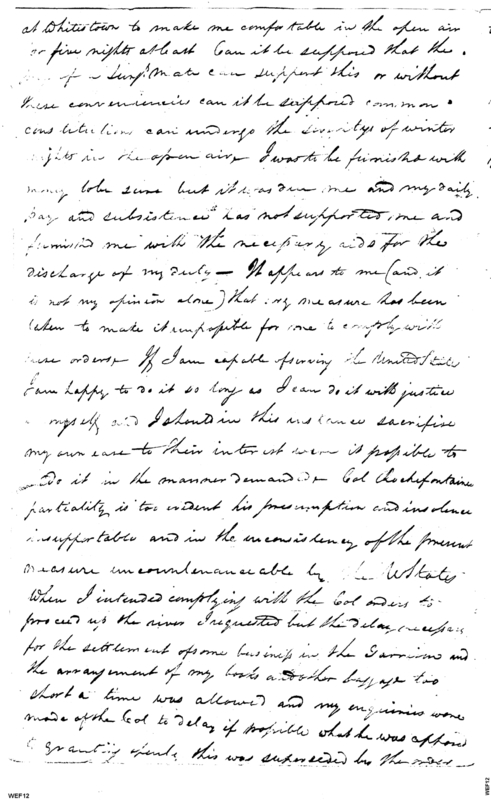 at Whitestown to make me comfortable in the open air
or five nights at least Can it be supposed that the
of a Surgs Mate can support this or without
these conveniencies can it be supposed common
constitutions can undergo the severitys of winter
nights in the open air I was to be furnishd with
money to be sure but it was due me and my daily
pay and subsistence has not supported me and
furnished me with the necessary aids for the
discharge of my duty — It appears to me (and it
is not my opinion alone) that every measure has been
taken to make it impossible for me to comply with
these orders If I am capable of serving the United States
I am happy to do it so long as I can do it with justice
myself and I should in this instance sacrifise
my own ease to their interest were it possible to
do it in the manner demanded Col Rochefontaine
partiality is too evident his presumption and insolence
insupportable and in the inconsistency of the present
measure uncountenanceable by the UStates
When I intended complying with the Col orders to
proceed up the river I requested but the delay necessary
for the settlement of some business in the Garrison and
the arrangement of my books and other baggage too
short a time was allowed and my enquiries were
made of the Col to delay if possible what he was
granting openly this was superseded by the order
WEF12
WEF12